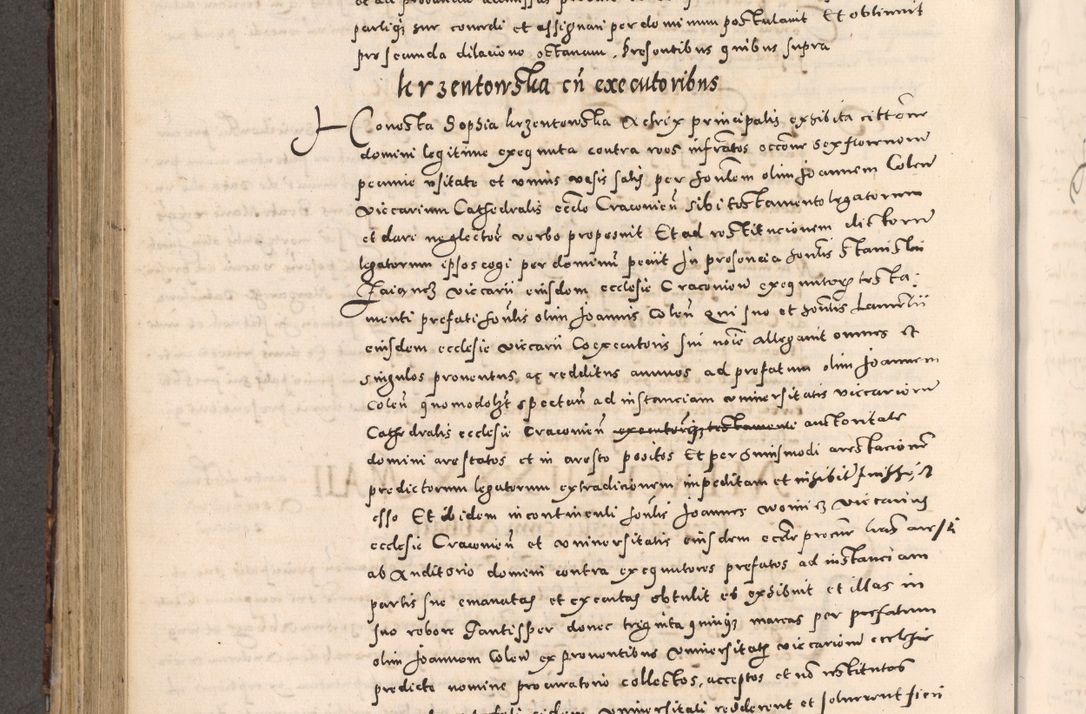 partique sur concedi et assignari per dominum postulavit Et obtinuit
pro secunda dilacione octavam. Presentibus quibus supra
krzentowska cũ executoribus
Honesta Sophia krzentowska Actrix principalis exhibita cittõne
domini legitime exequuta contra vos infratos occõne sex florenorum
pecunie usitate et unius vesis per honlem olim Joannem Colen
viccarium Cathedralis eccle Cracovien sibi testamento legatorum
et dari neglector verbo proposuit Et ad restitucionem dictorum
legatorum ipsos cogi per dominum peciit In presencia honlis Stanislai
viccarii eiusdem ecclesie Cracovien exequutoris testa
menti prefati honlis olim Joannis Colen Qui suo et honlis Laurentii
eiusdem ecclesie viccarii Coexecutoris sui noie allegavit omnes et
singulos proventus ac redditus annuos ad prefatum olim Joannem
Colen quomodolibet spectan ad instanciam universitatis viccariorum
Cathedralis ecclesie Cracovien executorumque testamenti auctoritate
domini arestatos et in aresto positos Et per huiusmodi arestacionem
predictorum legatorum extradicionem impeditam et
esse Et ibidem incontinenti honlis Joannes viccarius
ecclesie Cracovien et universitatis eiusdem eccle procur lras aresti
ab Auditorio domini contra exequutores prefatos ad instanciam
partis sue emanatas et executas obtulit et exhibuit et illas in
suo robore Tantisper donec triginta quinque marcas per prefatum
olim Joannem Colen ex proventibus universitatis viccariorum ecclesie
predicte nomine procuratorio collectos, acceptos et nõ restitutos
eidem universitati redderent et solverent fieri